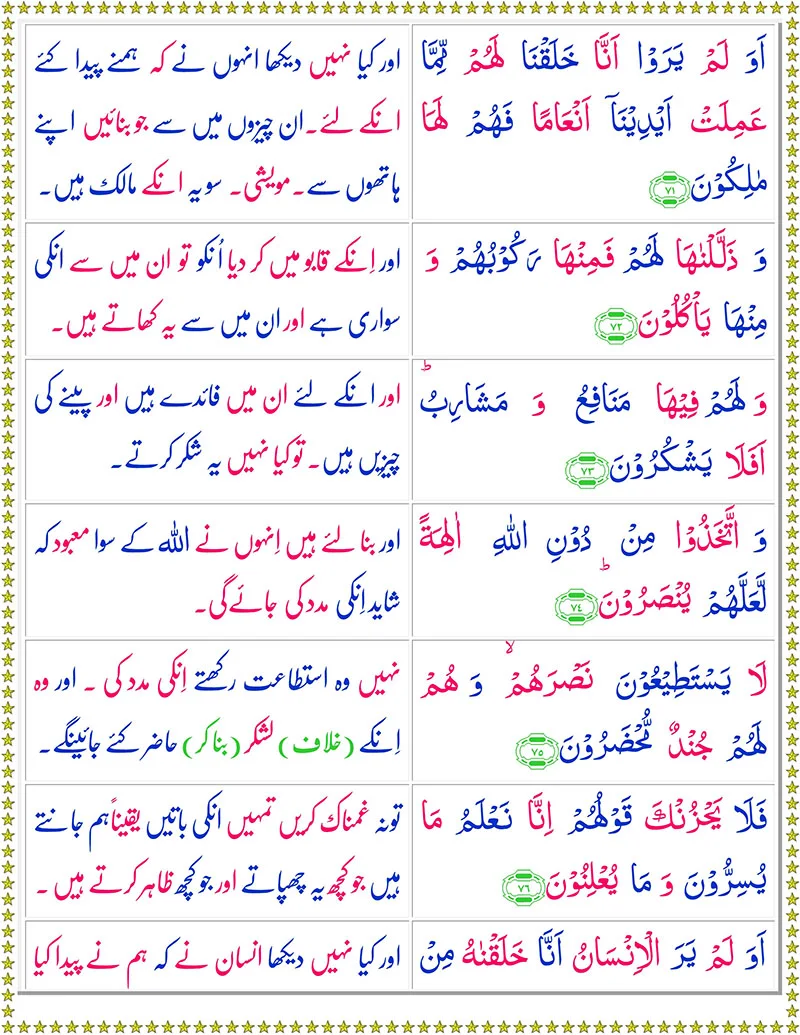 أَوَ لَمْ يَرَوْا أَنَّا خَلَقْنَا لَهُمْ مِّمَّا
عَمِلَتْ أَيْدِيْنَآ أَنْعَامًا فَهُمْ لَهَا
مٰلِكُوْنَ ٧١
اور کیا نہیں دیکھا انہوں نے کہ ہمنے پیدا کئے
انکے لئے۔ان چیزوں میں سے جو بنائیں اپنے
ہاتھوں سے۔مویشی۔ سو یہ انکے مالک ہیں۔
وَ ذَلَّلْنٰهَا لَهُمْ فَمِنْهَا رَكُوْبُهُمْ وَ
مِنْهَا يَأْكُلُوْنَ ٧٢
اور اِنکے قابو میں کر دیا اُنکو تو ان میں سے انکی
سواری ہے اور ان میں سے یہ کھاتے ہیں۔
وَ لَهُمْ فِيْهَا مَنَافِعُ وَ مَشَارِبُ ؕ
اَفَلَا يَشْكُرُوْنَ ٧٣
اور انکے لئے ان میں فائدے ہیں اور پینے کی
چیزیں ہیں۔ تو کیا نہیں یہ شکر کرتے۔
وَ اتَّخَذُوْا مِنْ دُوْنِ اللّٰهِ اٰلِهَةً
لَّعَلَّهُمْ يُنْصَرُوْنَ ؕ ٧٤
اور بنا لئے ہیں اِنہوں نے اللہ کے سوا معبود کہ
شاید اِنکی مدد کی جائے گی۔
لَا يَسْتَطِيْعُوْنَ نَصْرَهُمْ ۙ وَ هُمْ
لَهُمْ جُنْدٌ مُّحْضَرُوْنَ ٧٥
نہیں وہ استطاعت رکھتے اِنکی مدد کی ۔ اور وہ
اِنکے (خلاف) لشکر (بنا کر) حاضر کئے جائینگے۔
فَلَا يَحْزُنْكَ قَوْلُهُمْ اِنَّا نَعْلَمُ مَا
يُسِرُّوْنَ وَ مَا يُعْلِنُوْنَ ٧٦
تو نہ غمناک کریں تمہیں انکی باتیں یقیناً ہم جانتے
ہیں جو کچھ یہ چھپاتے اور جو کچھ ظاہر کرتے ہیں ۔
أَوَ لَمْ يَرَ الْاِنْسَانُ أَنَّا خَلَقْنٰهُ مِنْ
اور کیا نہیں دیکھا انسان نے کہ ہم نے پیدا کیا